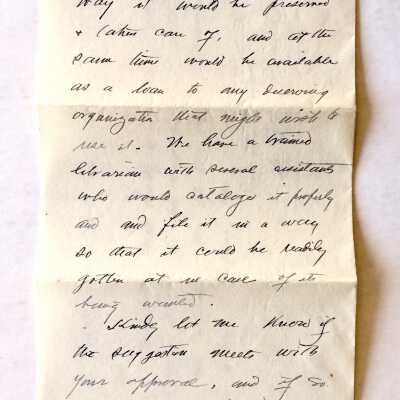 way it would be preserved
& taken care of, and at the
same time would be available
as a loan to any deserving
organization that might wish to
use it. We have a trained
librarian with several assistants
who would cataloge it properly
and and file it in a way
so that it could be readily
gotten at in case of its
being wanted.
Kindly let me know if
the suggestion meets with
your approval, and if so